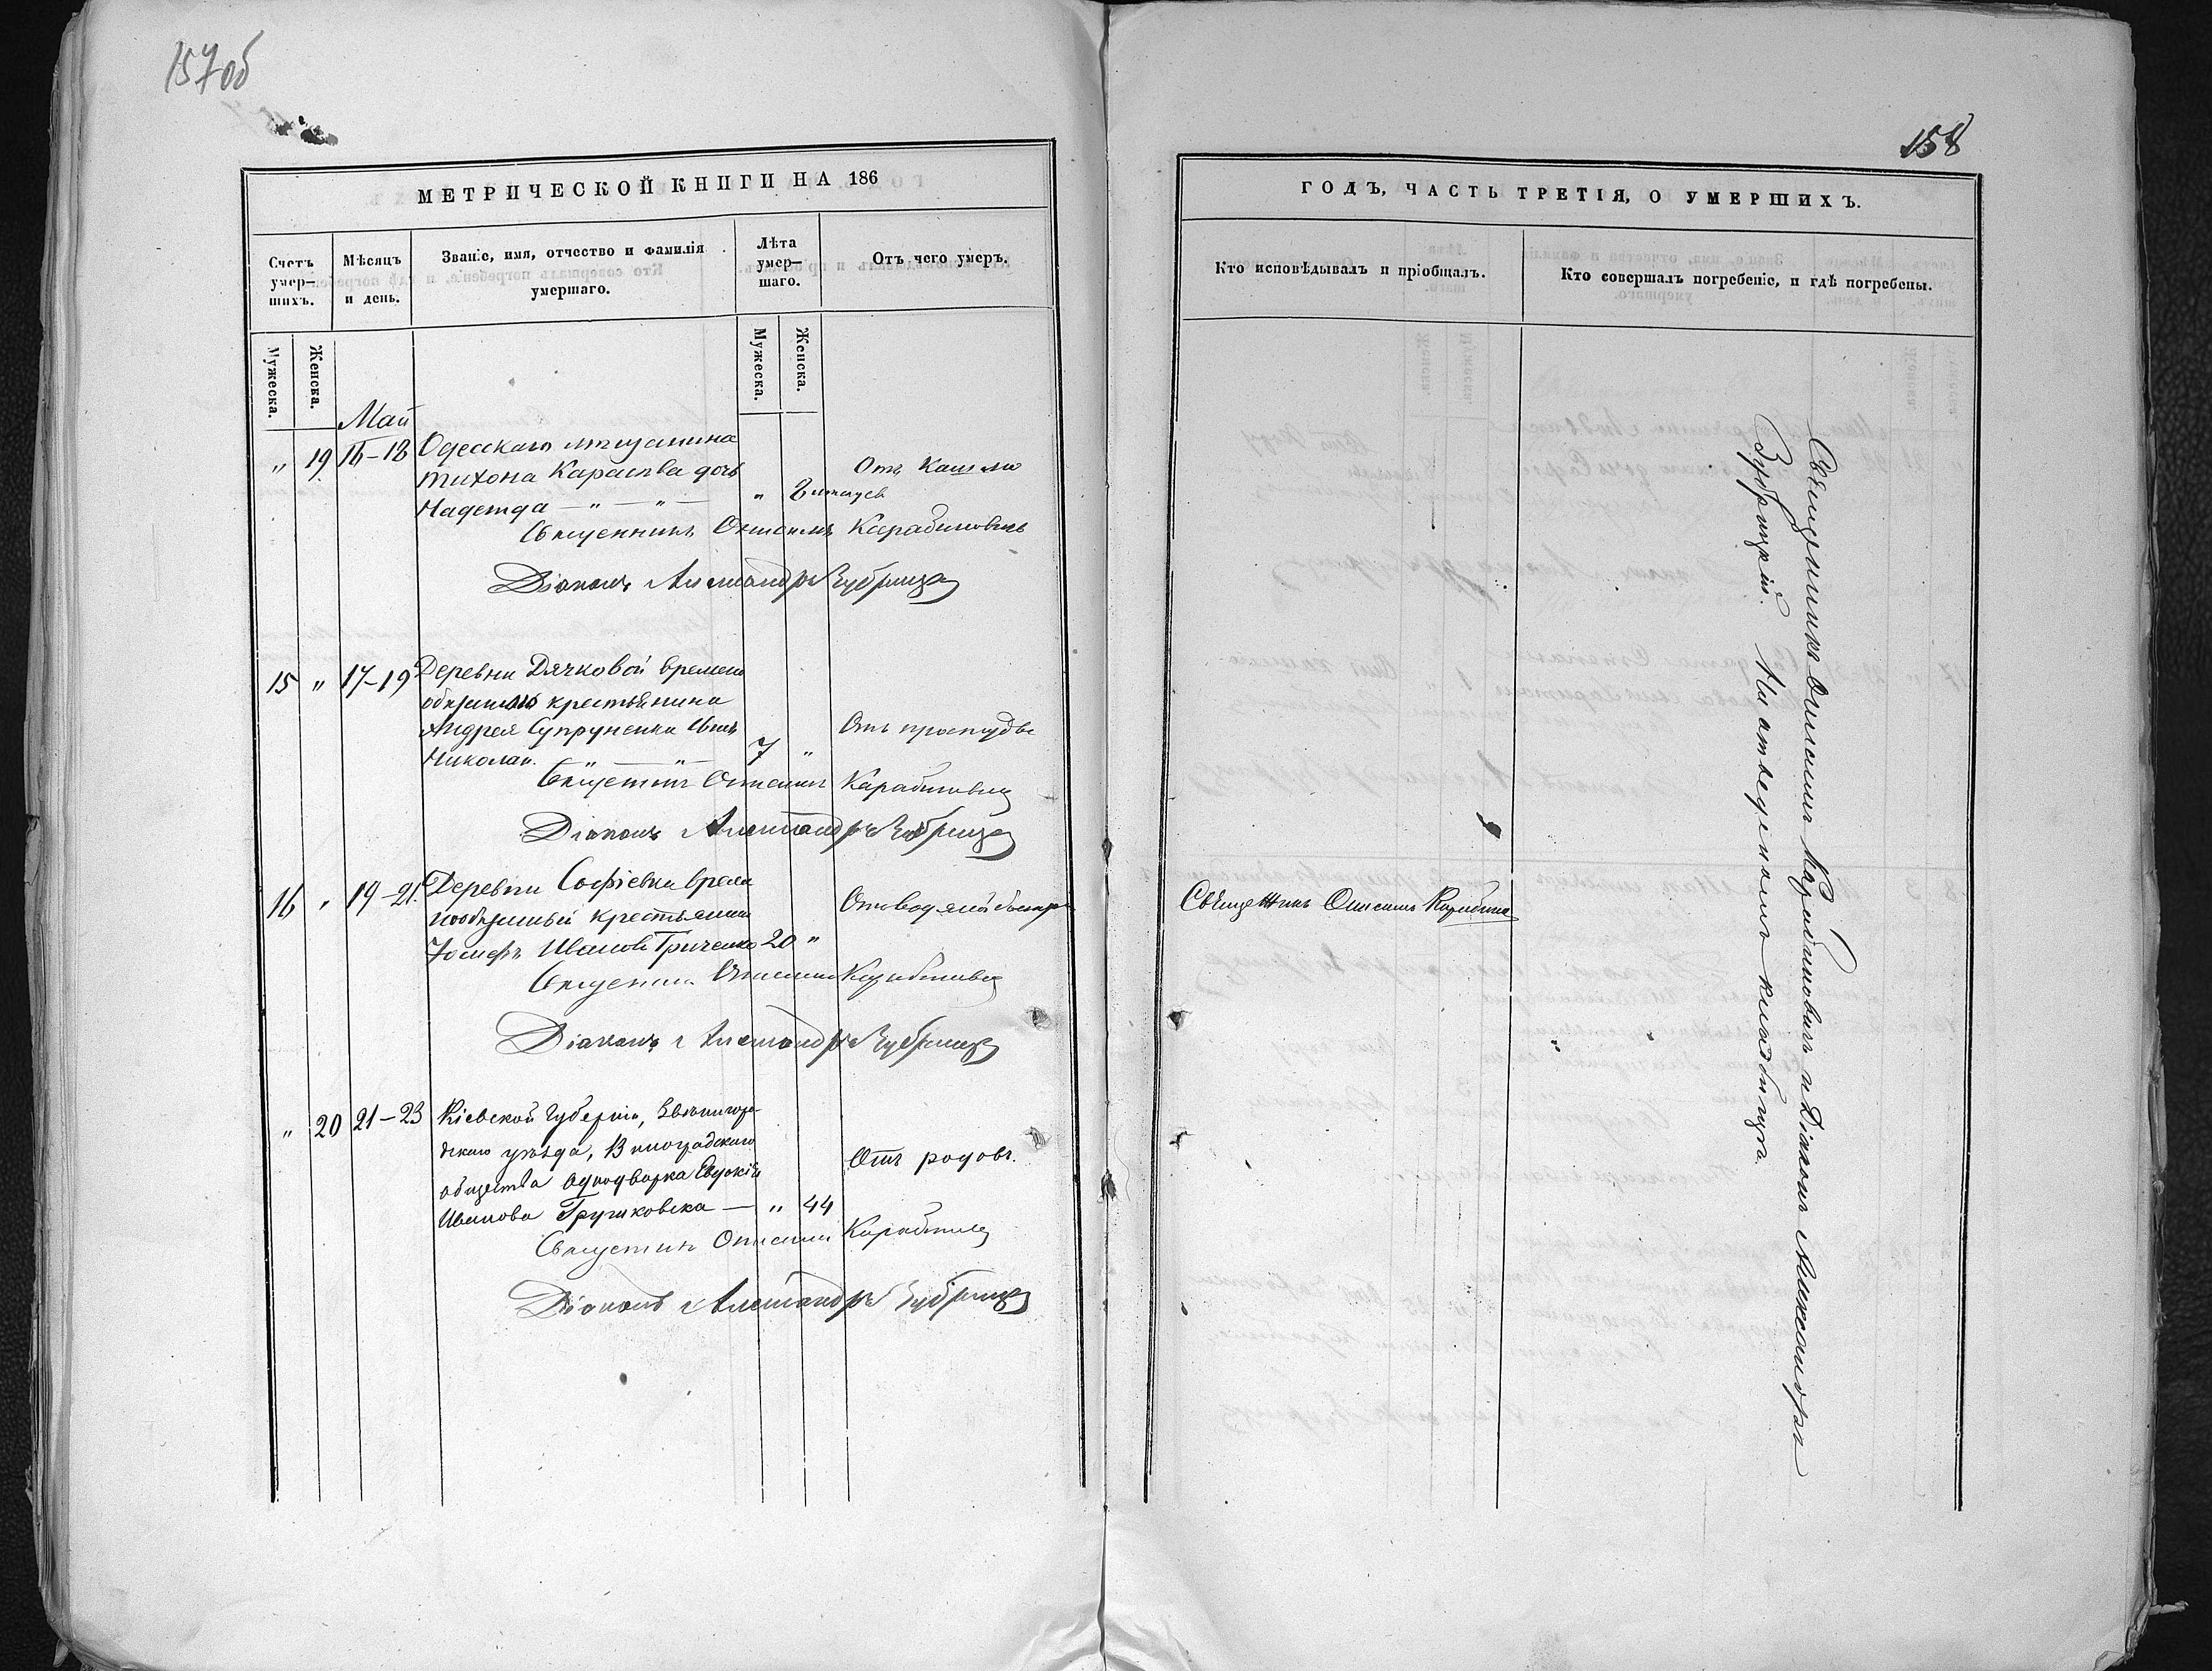 157об
МЕТРИЧЕСКОЙ КНИГИ НА 186
Счетъ умер-шихъ.
Мѣсяцъ и день.
Званіе, имя, отчество и фамилія умершаго.
Лѣта умер-шаго.
Отъ чего умеръ.
Мужеска.
Женска.
Мужеска.
Женска.
Май
" 19 16-18 Одесскаго мещанина
Тихона Караива дочь Отъ кашлю
Надежда — " — " — " 8 месяцев
Священникъ Онисимъ Карабиновичъ
Діаконъ Александръ Зубрицкій
15 " 17-19 Деревни Дячковой времен
обязаннаго крестьянина
Андрея Супруненка сынъ Отъ простуды
Николай. — " — " — 7 "
Священникъ Онисимъ Карабиновичъ
Діаконъ Александръ Зубрицкій
16 " 19-21. Деревни Софіевки време Отъ водяной
нообязанный крестьянин
Іосифъ Иванов Гриченко 20 "
Священникъ Онисимъ Карабиновичъ
Діаконъ Александръ Зубрицкій
" 20 21-23 Кіевской Губерніи, Звѣнигоро-
дскаго уѣзда, Виноградского
общества однодворка Евдокія Отъ родовъ.
Иванова Грушковска — " 44
Священникъ Онисимъ Карабиновичъ
Діаконъ Александръ Зубрицкій
158
ГОДЪ, ЧАСТЬ ТРЕТІЯ, О УМЕРШИХЪ.
Кто исповѣдывалъ и пріобщалъ.
Кто совершалъ погребеніе, и гдѣ погребены.
Священникъ Онисимъ Карабино
Священникъ Онисимъ Карабиновичъ и Діаконъ Александръ
Зубрицкій. На отведенномъ кладбищѣ.